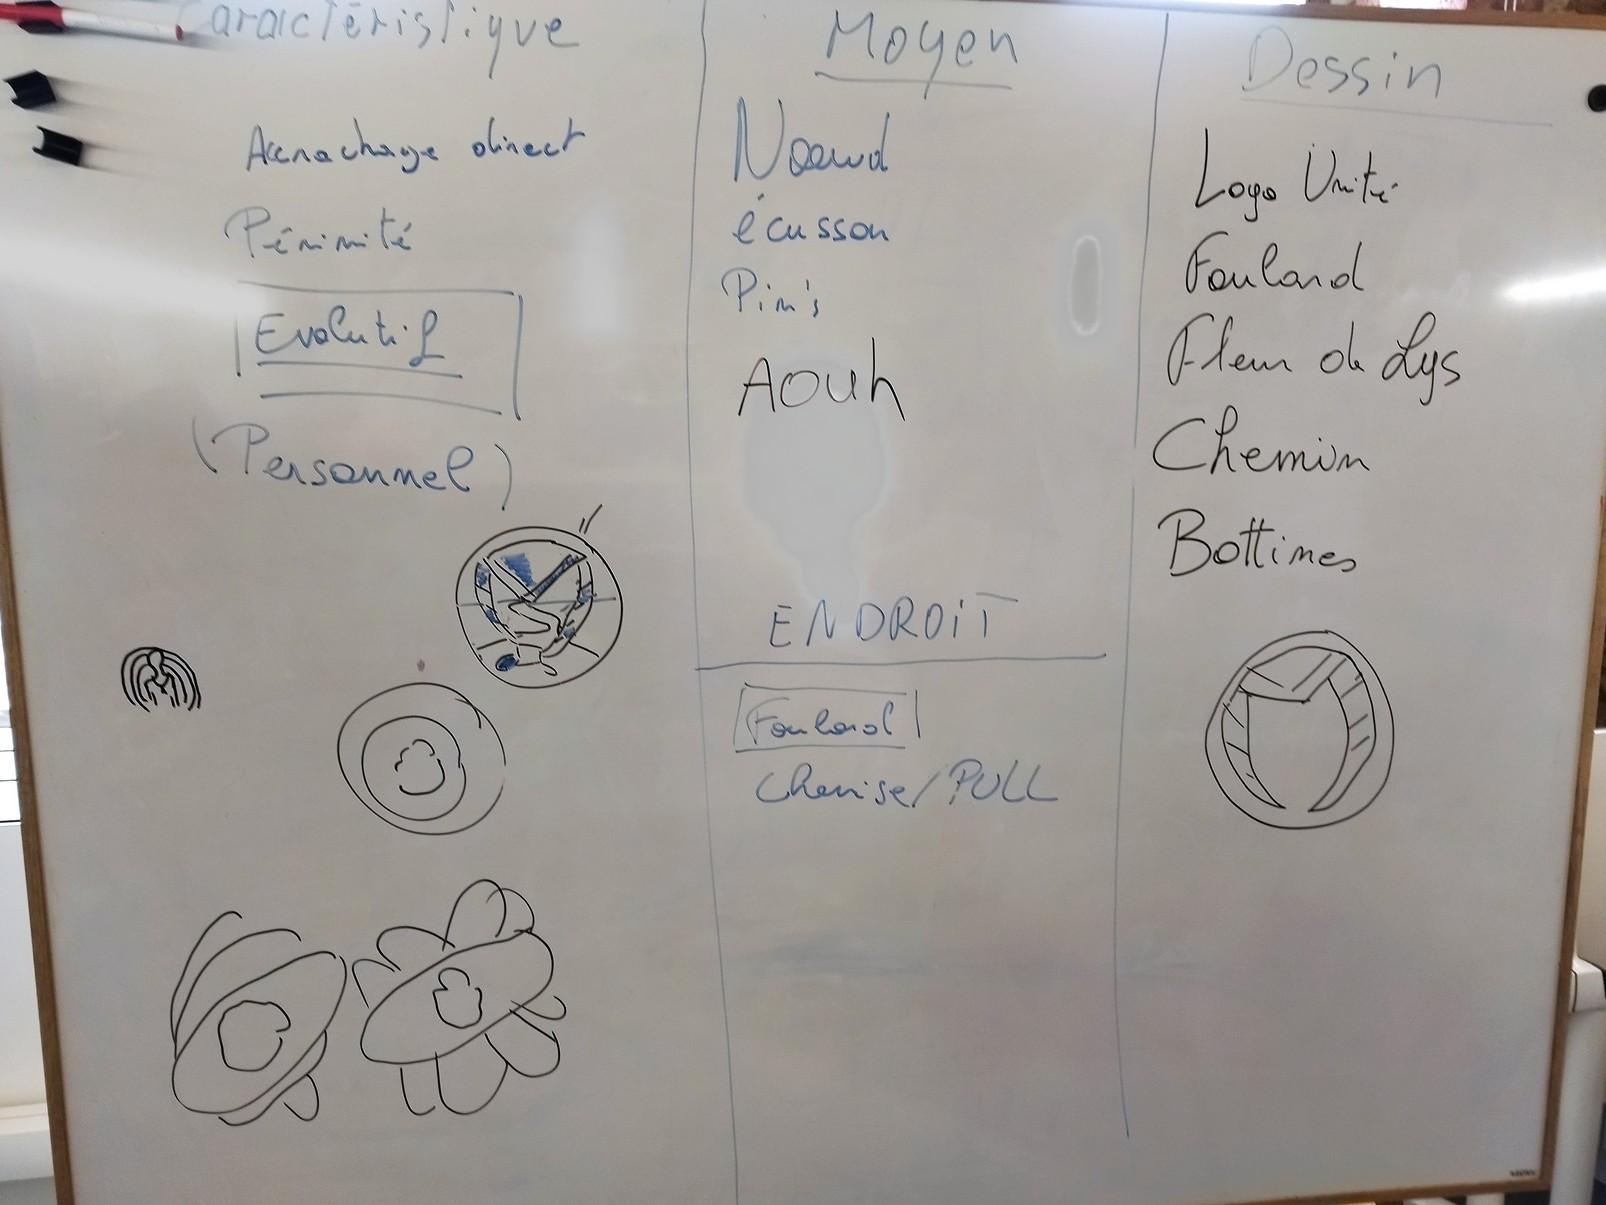 Caractéristique
Accrochage direct
Périmité
Evolutif
(Personnel)
Moyen
Noeud
écusson
Pin's
Aouh
ENDROIT
Foulard
Chemise/PULL
Dessin
Logo Unité
Foulard
Fleur de Lys
Chemin
Bottines